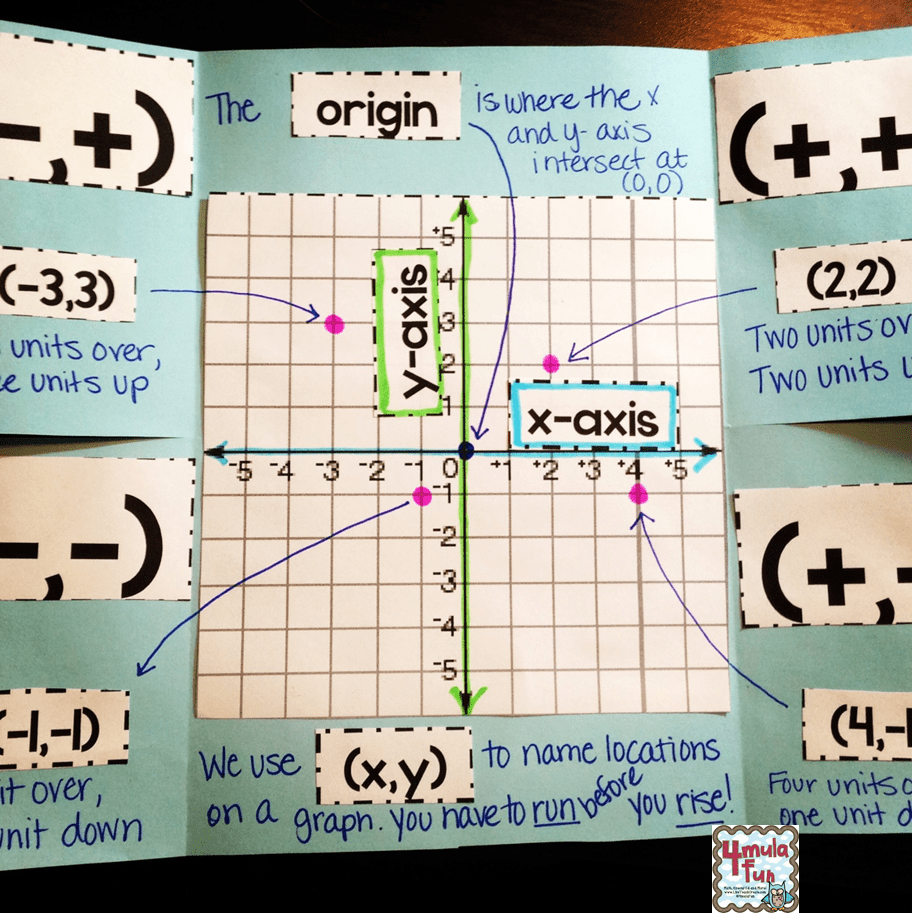 -,+)
The origin is where the x
and y-axis
intersect at
(0,0)
(+,+
(-3,3)
units over,
units up
(2,2)
Two units
Two units
y-axis
x-axis
+5
4
3
2
1
-5 -4 -3 -2 -1 0 +1 +2 +3 +4 +5
-1
-2
-3
-4
-5
-,-)
(+,-
(-1,-1)
over,
unit down
(4,-1
Four units
one unit
We use (x,y) to name locations
on a graph. you have to run before you rise!
4mula
fun